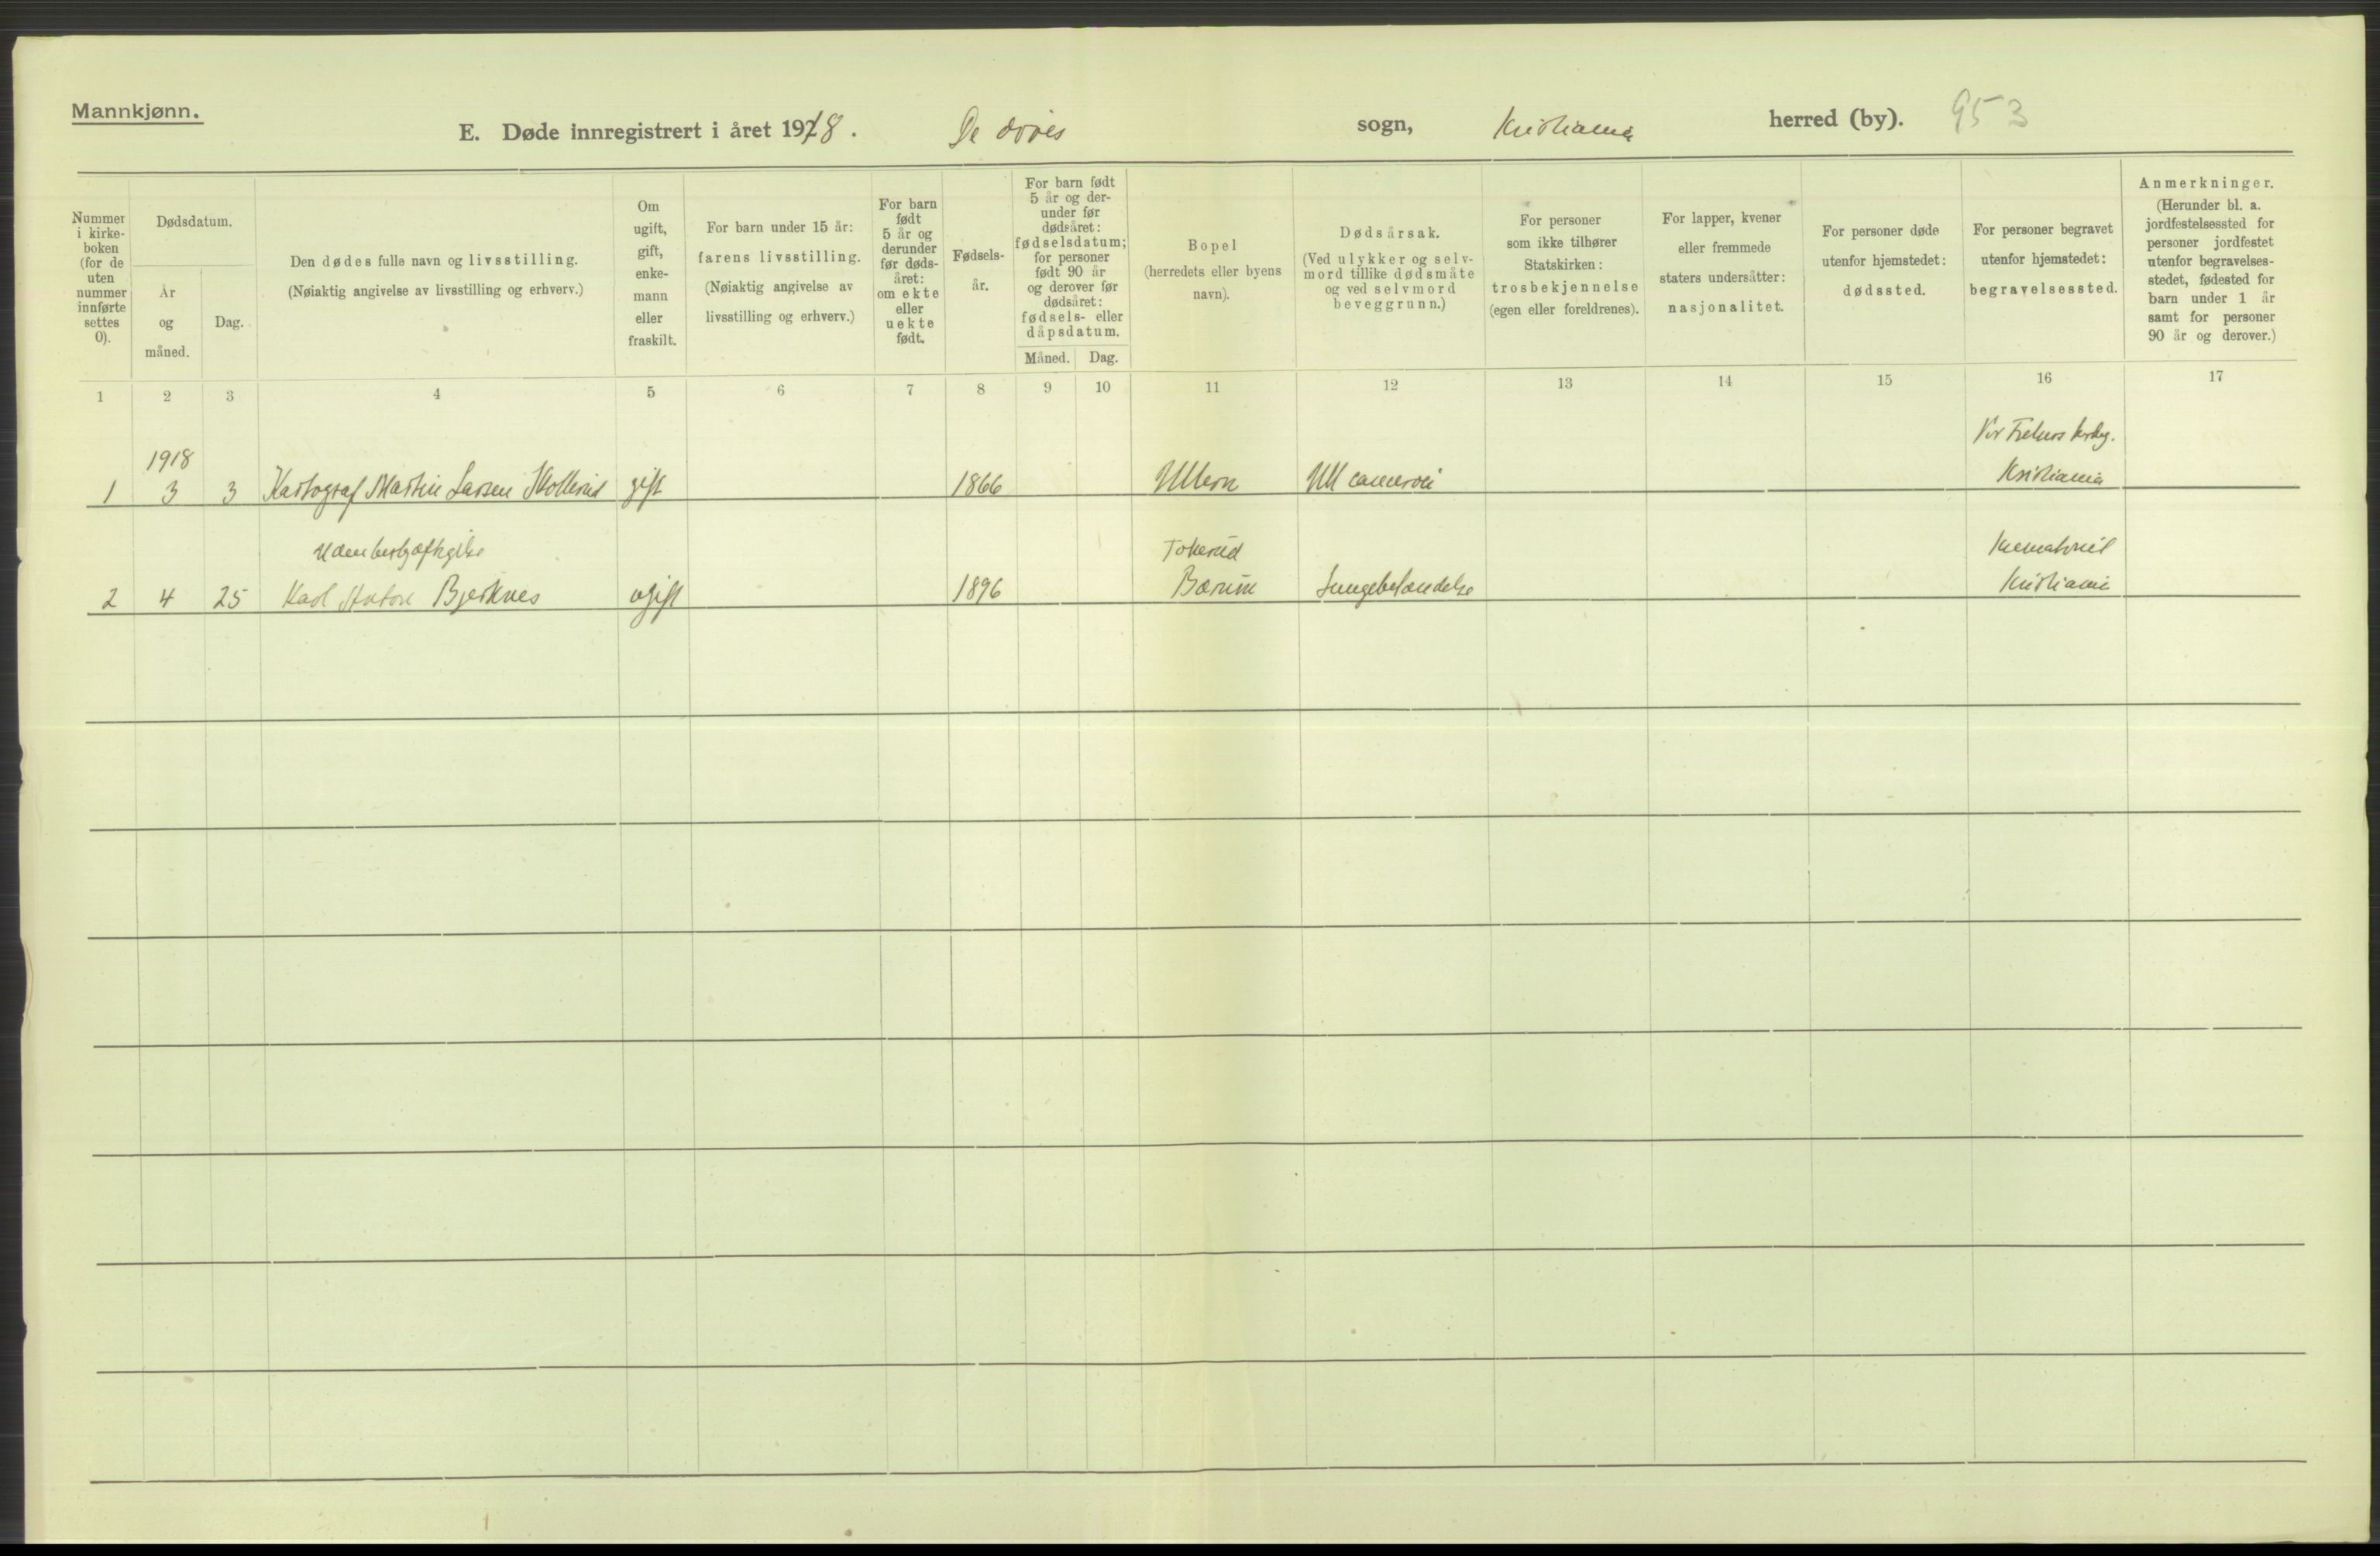 Mannkjønn.
E. Døde innregistrert i året 1918. De døves sogn, Kristiania herred (by). 953
Nummer i kirke- boken (for de uten nummer innførte settes 0).
Dødsdatum.
År og måned.
Dag.
Den dødes fulle navn og livsstilling.
(Nøiaktig angivelse av livsstilling og erhverv.)
Om ugift, gift, enke- mann eller fraskilt.
For barn under 15 år:
farens livsstilling.
(Nøiaktig angivelse av
livsstilling og erhverv.)
For barn født 5 år og derunder før døds- året: om ekte eller uekte født.
Fødsels- år.
For barn født 5 år og der- under før dødsåret: fødselsdatum; for personer født 90 år og derover før dødsåret: fødsels- eller dåpsdatum.
Måned. Dag.
Bopel
(herredets eller byens
navn).
Dødsårsak.
(Ved ulykker og selv-
mord tillike dødsmåte
og ved selvmord
beveggrunn.)
For personer
som ikke tilhører
Statskirken:
trosbekjennelse
(egen eller foreldrenes).
For lapper, kvener
eller fremmede
staters undersåtter:
nasjonalitet.
For personer døde
utenfor hjemstedet:
dødssted.
For personer begravet
utenfor hjemstedet:
begravelsessted.
Anmerkninger.
(Herunder bl. a.
jordfestelsessted for
personer jordfestet
utenfor begravelses-
stedet, fødested for
barn under 1 år
samt for personer
90 år og derover.)
1 2 3 4 5 6 7 8 9 10 11 12 13 14 15 16 17
1918
Vor Frelsers
1 3 3 Kartograf Martin Larsen gift 1866 Ullern Kristiania
Uten beskjæftigelse Tokerud Krematoriet
2 4 25 Karl Anton Bjerknes ugift 1896 Bærum Lungebetændelse Kristiania